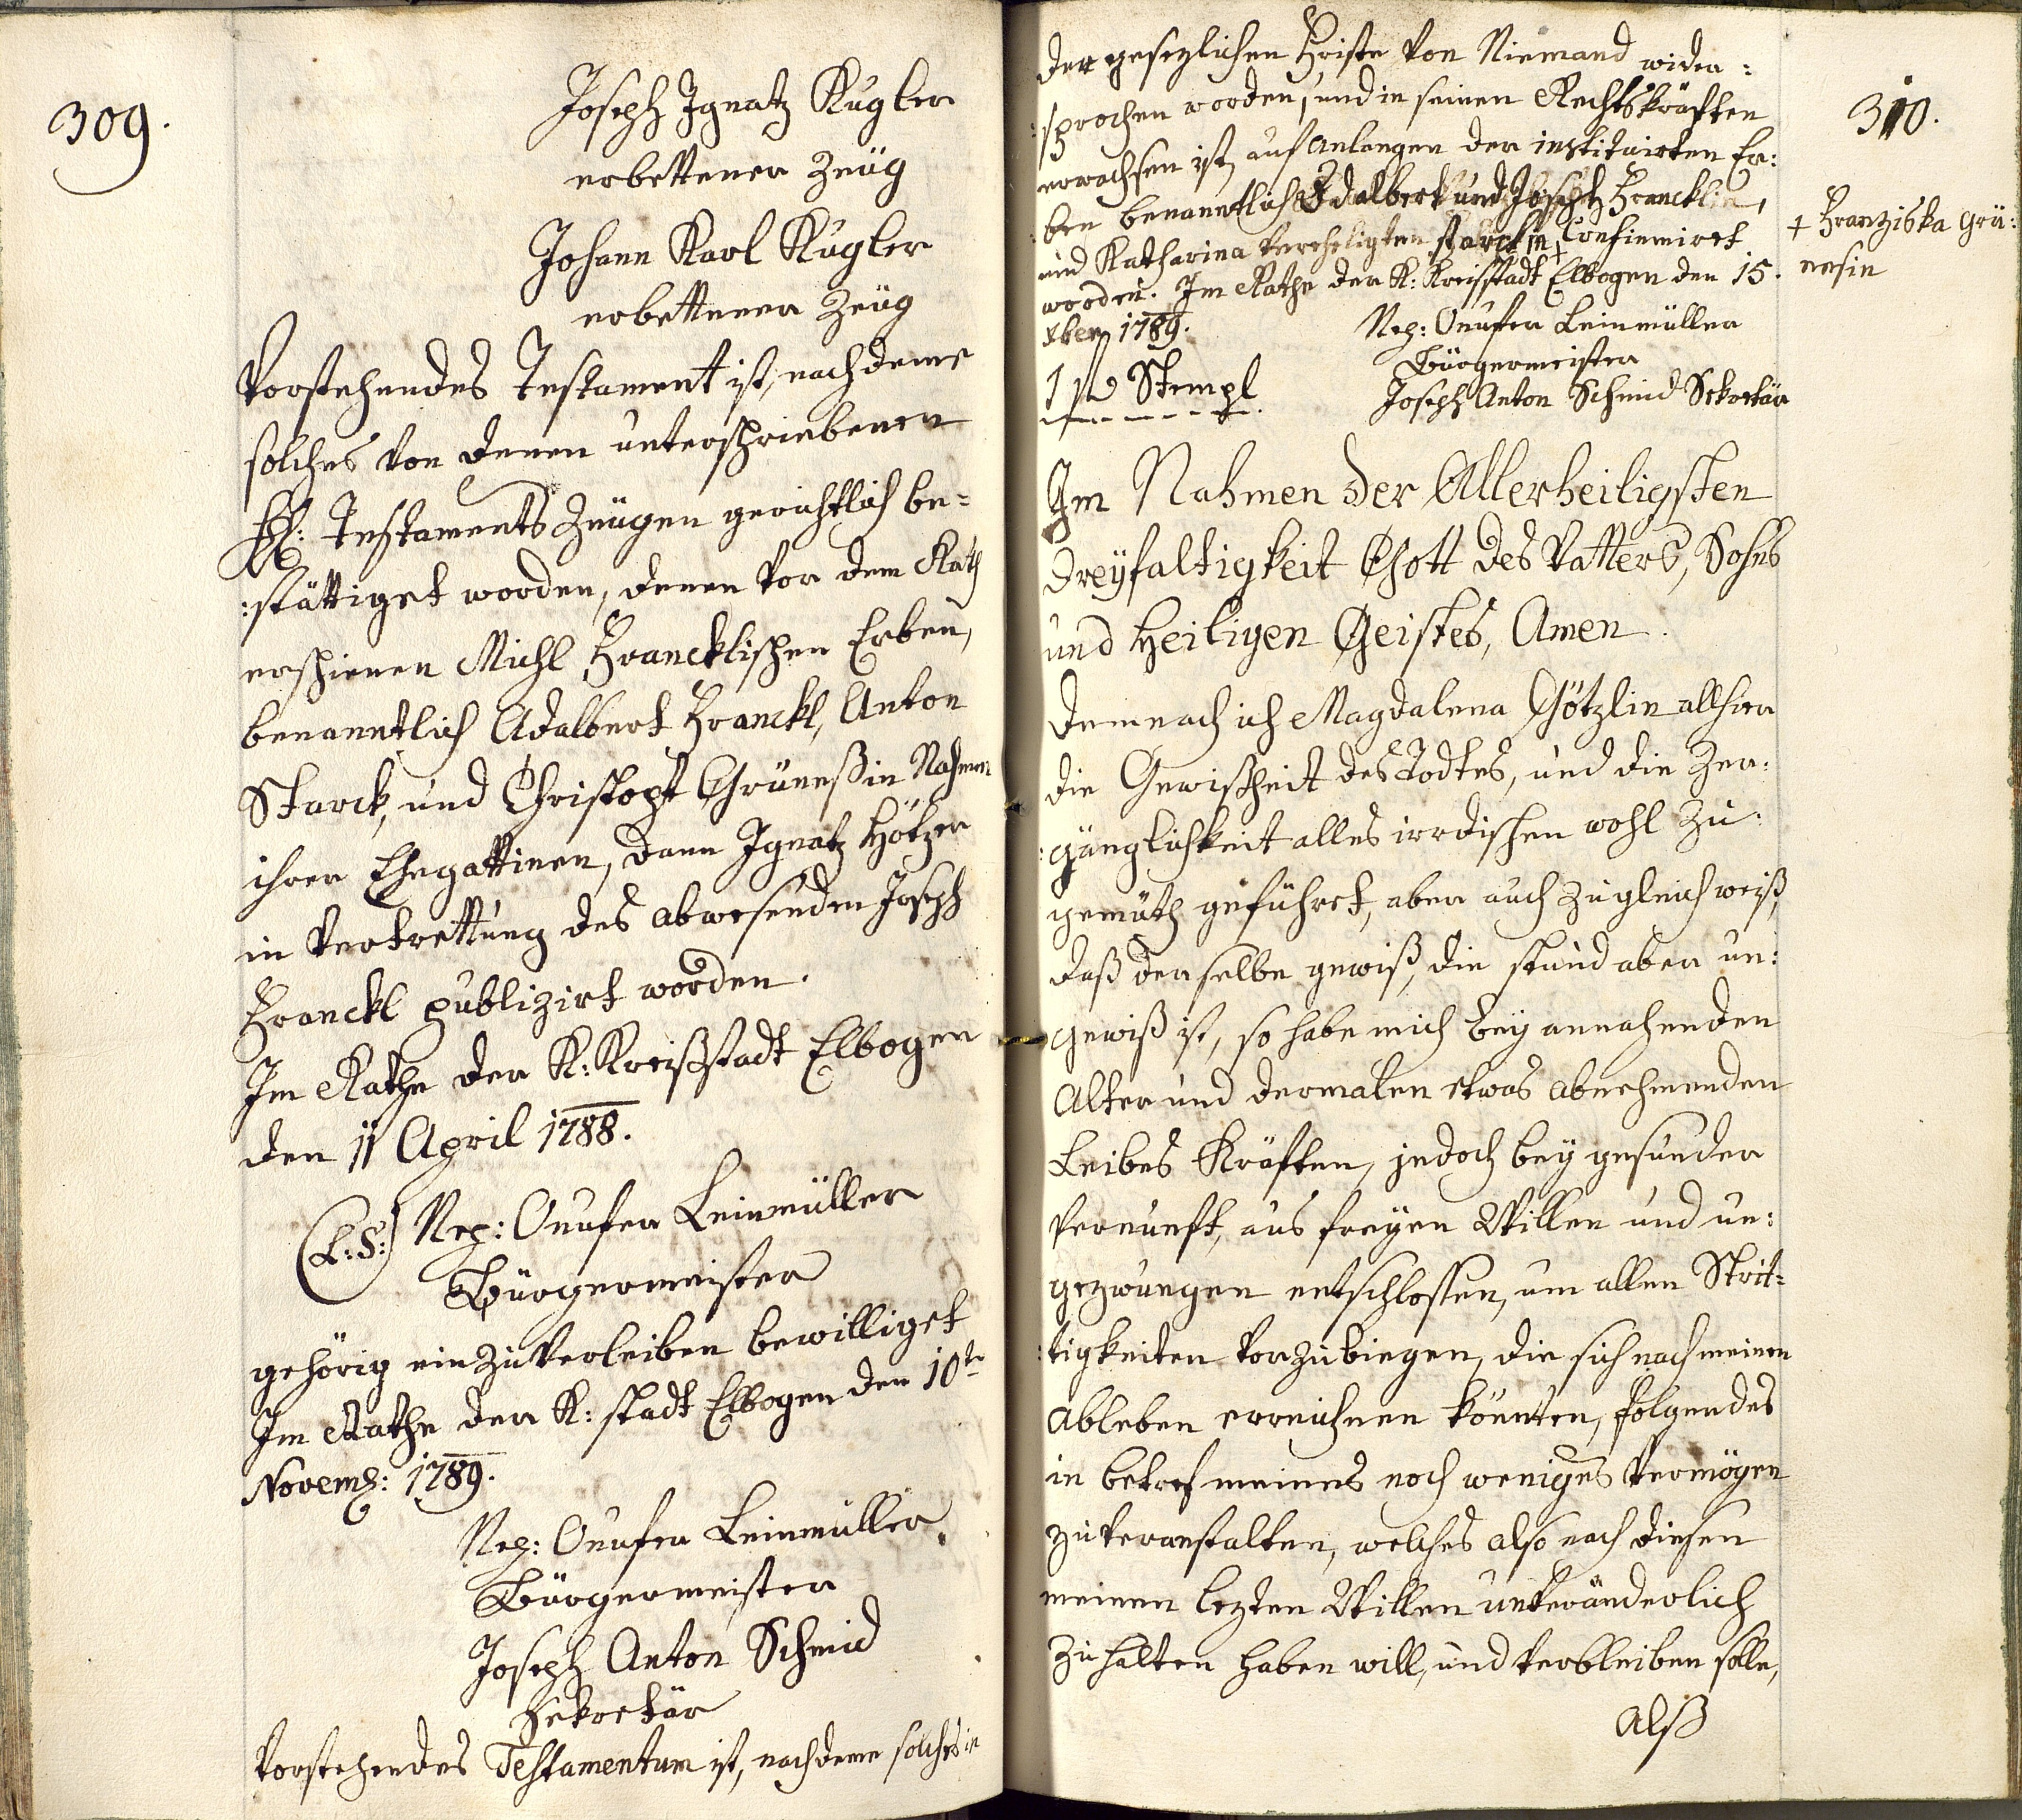 309.
Joseph Ignatz Kugler
erbettener Zeüg
Johann Karl Kugler
erbettener Zeüg
Vorstehendes Testament ist, nachdeme
solches von denen unterschriebenen
HH: Testaments Zeügen gerichtlich be=
:stättiget worden, denen vor dem Rath
erschienen Michl Francklischen Erben,
benanntlich Adalbert Franckl, Anton
Starck, und Christoph Grünes in Nahmen
ihrer Ehegattinen, dann Ignatz Hötzer
in Vertrettung des abwesenden Joseph
Franckl publizirt worden.
Im Rathe der K: Kreißstadt Elbogen
den 11 April 1788.
(L:S:) Nep: Onufer Leinmüller
Bürgermeister
gehörig einzuverleiben bewilliget
Im Rathe der K: stadt Elbogen den 10te
Novemb: 1789.
Nep: Onufer Leinmüller
Bürgermeister
Joseph Anton Schmid
Sekretär
Vorstehendes Testamentum ist, nachdeme solches in
310.
der gesezlichen Friste von Niemand wider:
:sprochen worden, und in seinen Rechtskräften
erwachsen ist, auf Anlangen der instituirten Er:
:ben benanntlich Adalbert und Joseph Francklin,
und Katharina verehligten starckin + Confirmiret
worden. Im Rathe der K: Kreisstadt Elbogen den 15.
Xber 1789.
+ Franziska Grü:
nesin
Nep: Onufer Leinmüller
Bürgermeister
1 f Stempl
Joseph Anton Schmid Sekretär
Im Nahmen der Allerheiligsten
Dreyfaltigkeit Gott des Vatters, Sohns
und Heiligen Geistes, Amen.
Demnach ich Magdalena Götzlin allhier
die Gewißheit des Todtes, und die Zer:
:gänglichkeit alles irrdischen wohl zu
gemüth geführet, aber auch zugleich weiß,
daß derselbe gewiß, die stund aber un:
gewiß ist, so habe mich bey annahenden
Alter und dermalen etwas abnehmenden
Leibes Kräften, jedoch bey gesunder
Vernunft, aus freyen Willen und un:
gezwungen entschlossen, um allen Strit=
:tigkeiten vorzubiegen, die sich nach meinen
Ableben ereichnen könnten, folgendes
in betref meines noch weniges Vermögen
zu veranstalten, welches also nach diesen
meinen lezten Willen unveränderlich
zu halten haben will, und verbleiben solle,
Alß